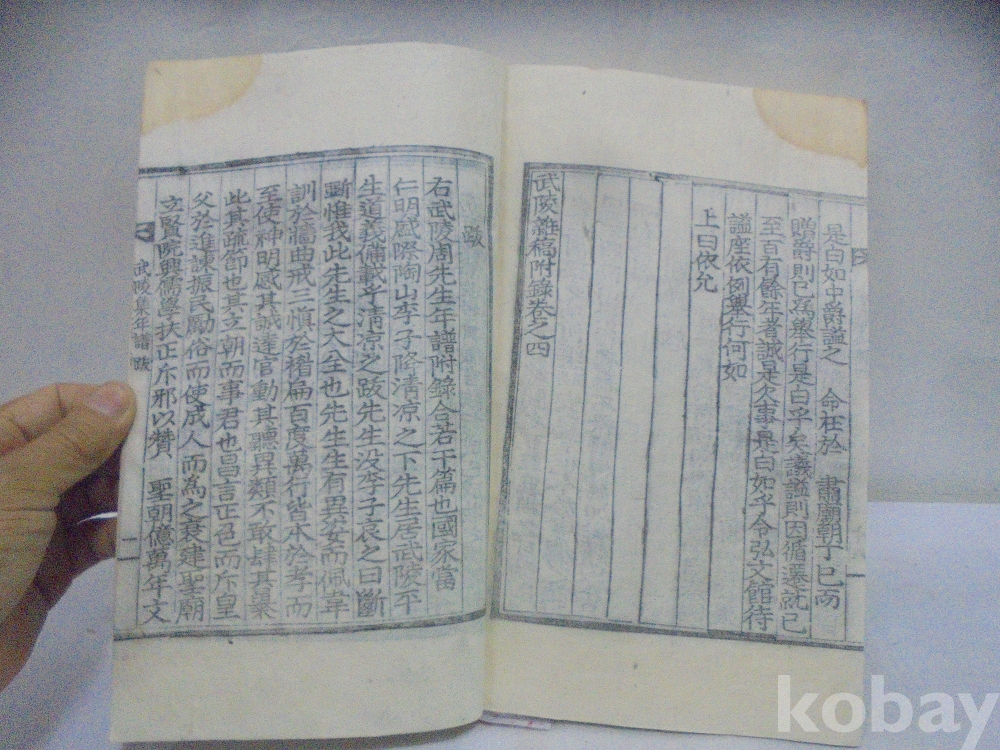 是白如中爵諡之 命在於 肅廟朝丁巳而
贈爵則已爲擧行是白乎矣議諡則因循遷就已
至百有餘年者誠是欠事是白如乎令弘文館待
諡座依例擧行何如
上曰依允
武陵雜稿附錄卷之四
跋
右武陵周先生年譜附錄合若干篇也國家當
仁明盛際陶山李子降淸凉之下先生居武陵平
生道義備載乎淸凉之跋先生没李子哀之曰斷
斷惟我此先生之大全也先生生有異姿而佩韋
訓於牆曲戒三愼於楣扁百度萬行皆本於孝而
至使神明感其誠達官動其聽異類不敢肆其桀
此其疏節也其立朝而事君也昌言正色而斥皇
父於進諫振民勵俗而使成人而爲之衰建聖廟
立賢院興儒學扶正斥邪以贊 聖朝億萬年文
武陵集年譜 跋 一
kobay